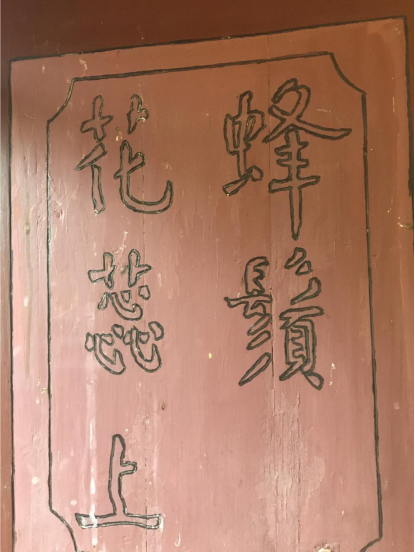 蜂鬚
花蕊上